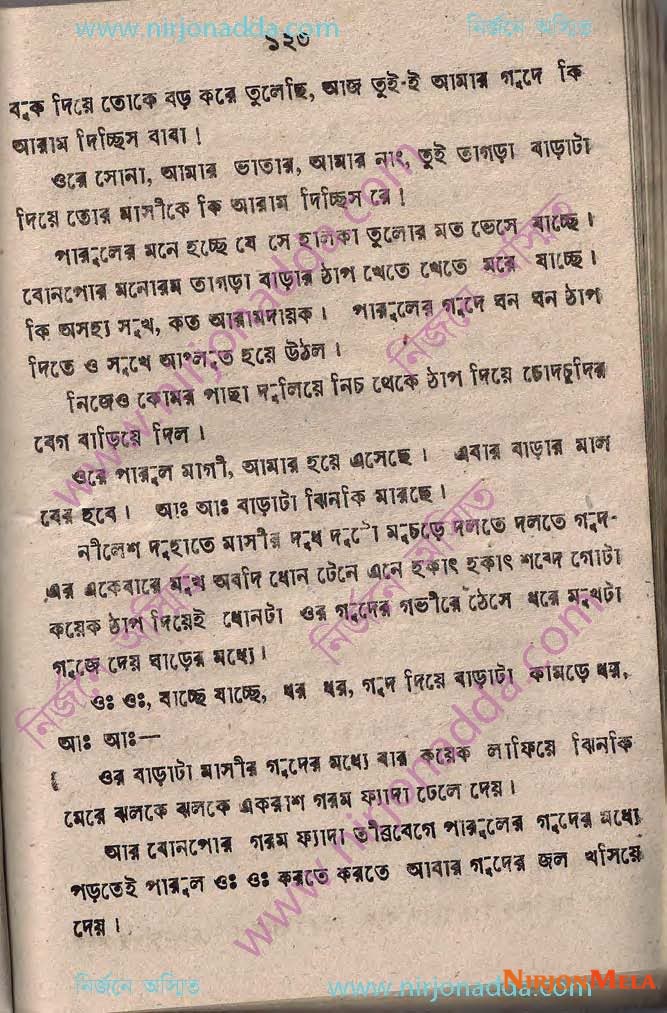 www.nirjonadda.com নির্জনে অস্মিত
১২৩
বুক দিয়ে তোকে বড় করে তুলেছি, আজ তুই-ই আমার গুদে কি
আরাম দিচ্ছিস বাবা !
ওরে সোনা, আমার ভাতার, আমার নাং, তুই তাগড়া বাড়াটা
দিয়ে তোর মাসীকে কি আরাম দিচ্ছিস রে !
পারুলের মনে হচ্ছে যে সে হালকা তুলোর মত ভেসে যাচ্ছে।
বোনপোর মনোরম তাগড়া বাড়ার ঠাপ খেতে খেতে মরে যাচ্ছে।
কি অসহ্য সুখ, কত আরামদায়ক। পারুলের গুদে ঘন ঘন ঠাপ
দিতে ও সুখে আপ্লুত হয়ে উঠল।
নিজেও কোমর পাছা দুলিয়ে নিচ থেকে ঠাপ দিয়ে চোদচুদির
বেগ বাড়িয়ে দিল।
ওরে পারুল মাগী, আমার হয়ে এসেছে। এবার বাড়ার মাল
বের হবে। আঃ আঃ বাড়াটা ঝিনকি মারছে।
নীলেশ দুহাতে মাসীর দুধ দুটো মুচড়ে দলতে দলতে গুদ-
এর একেবারে মুখ অবদি ধোন টেনে এনে হকাৎ হকাৎ শব্দে গোটা
কয়েক ঠাপ দিয়েই ধোনটা ওর গুদের গভীরে ঠেসে ধরে মুখটা
গুজে দেয় ঘাড়ের মধ্যে।
ওঃ ওঃ, যাচ্ছে যাচ্ছে, ধর ধর, গুদ দিয়ে বাড়াটা কামড়ে ধর,
আঃ আঃ—
ওর বাড়াটা মাসীর গুদের মধ্যে বার কয়েক লাফিয়ে ঝিনকি
মেরে ঝলকে ঝলকে একরাশ গরম ফ্যাদা ঢেলে দেয়।
আর বোনপোর গরম ফ্যাদা তীরবেগে পারুলের গুদের মধ্যে
পড়তেই পারুল ওঃ ওঃ করতে করতে আবার গুদের জল খসিয়ে
দেয়।
www.nirjonadda.com
নির্জনে অস্মিত
www.nirjonadda.com
নির্জনে অস্মিত
নির্জনে অস্মিত
নির্জনে অস্মিত www.nirjonadda.com
NIRJONMELA